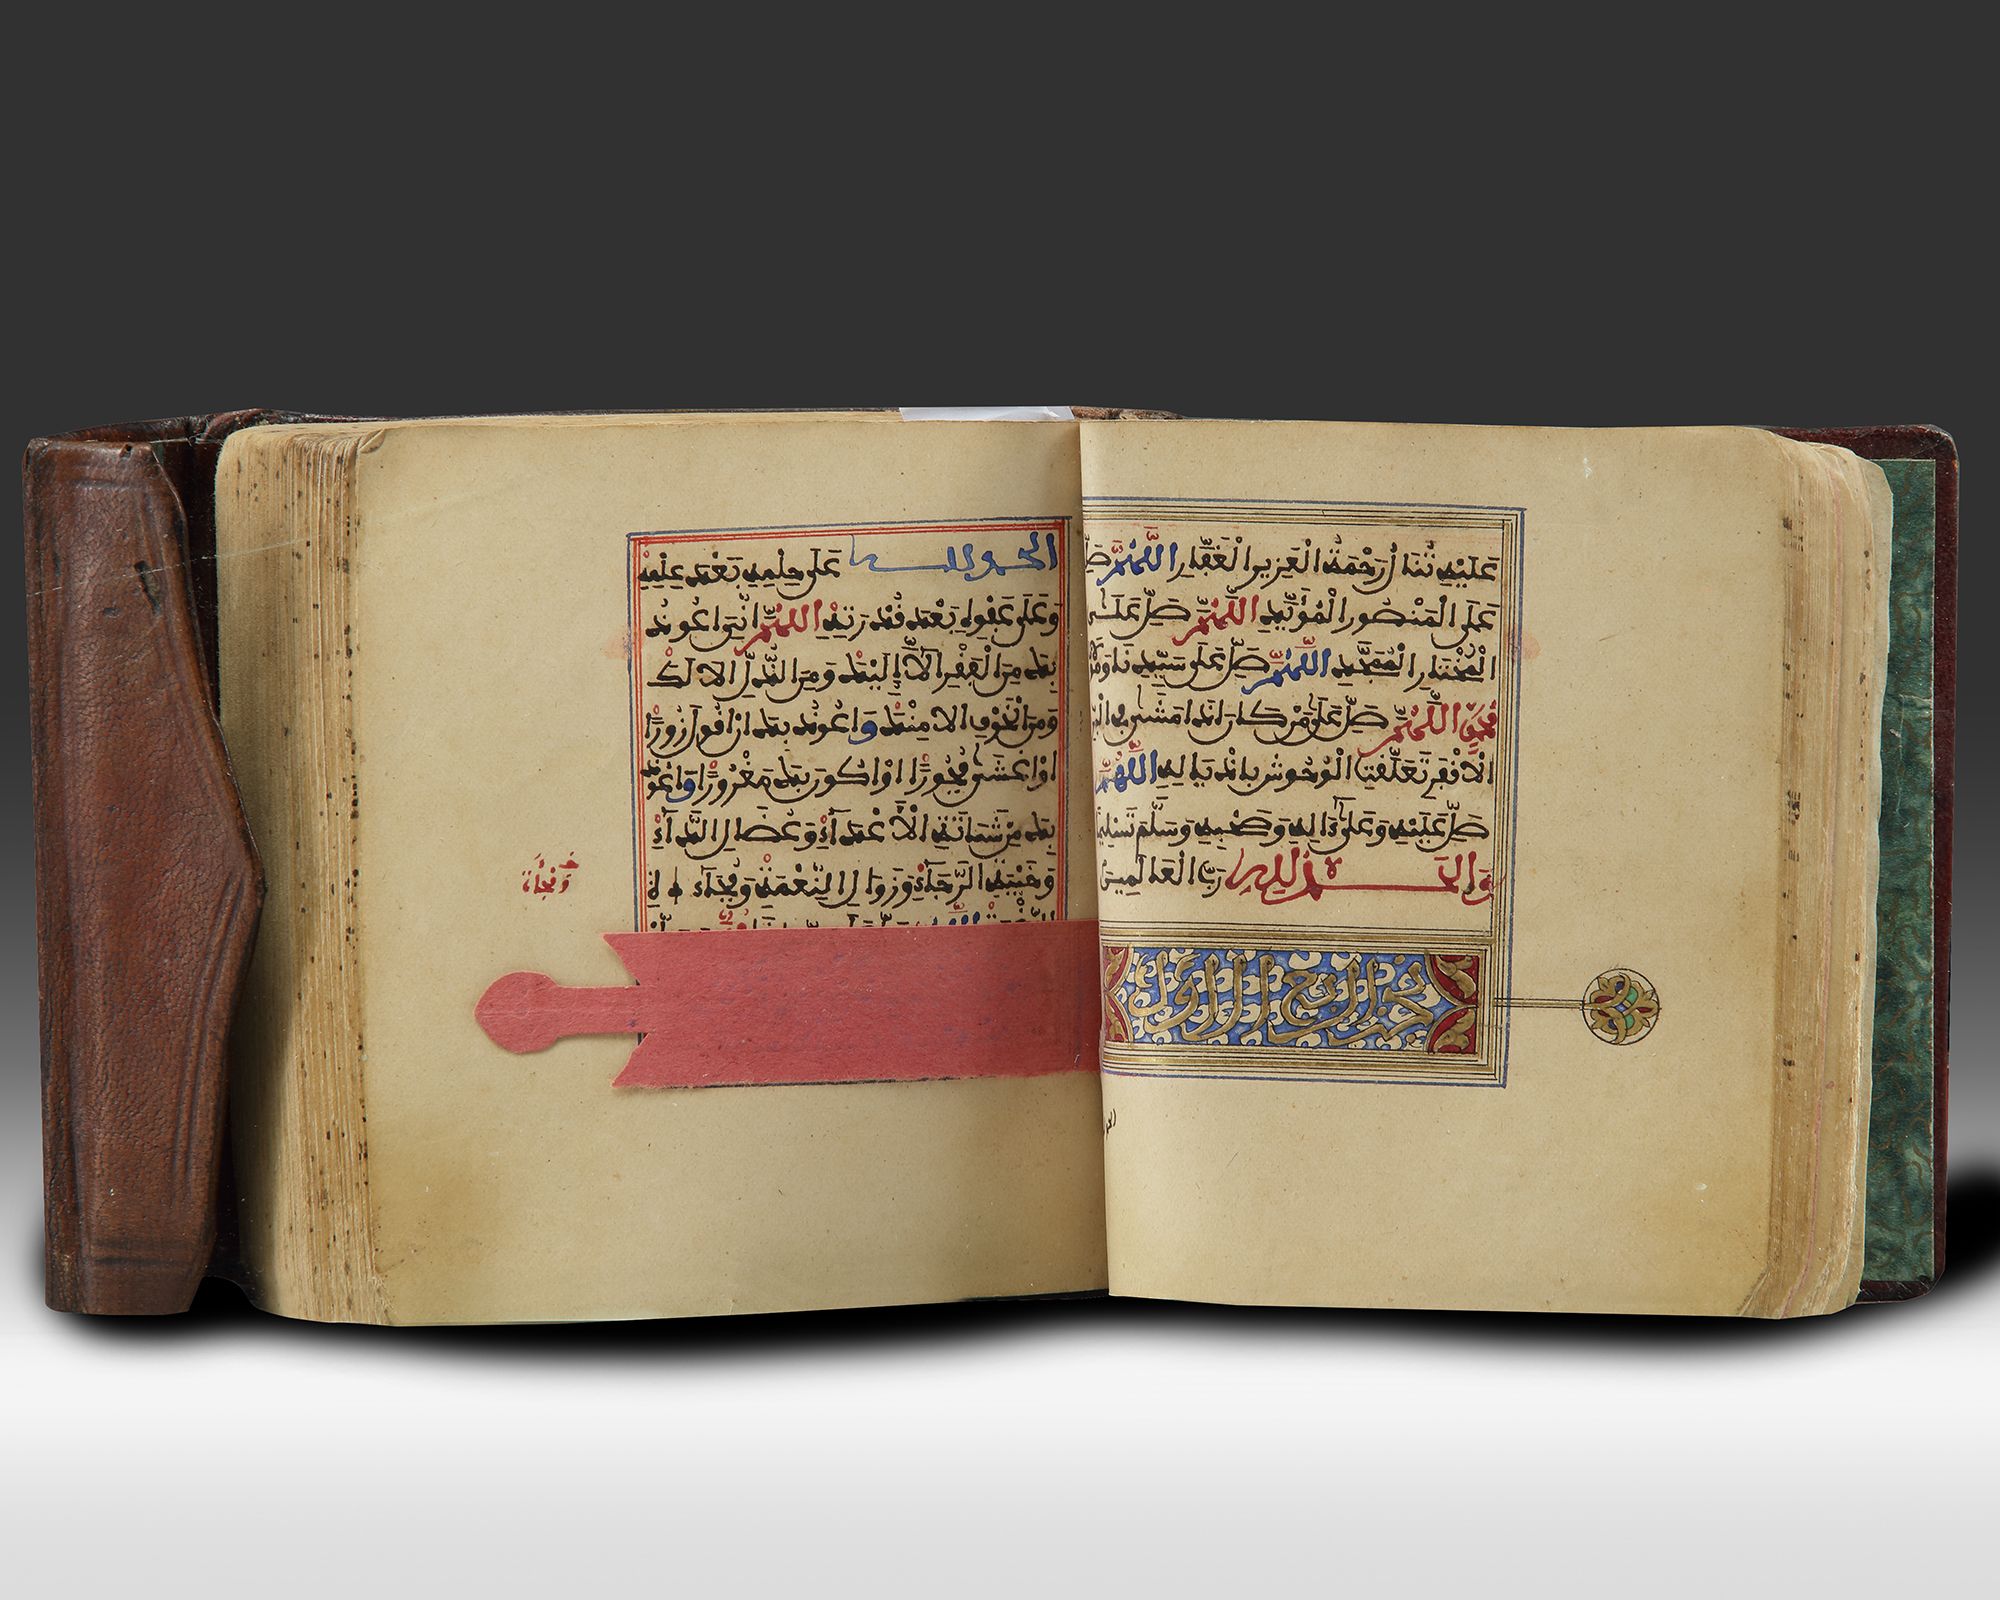 عَلَيْهِ تُنَالُ رَحْمَةُ الْعَزِيزِ الْغَفَّارِ اللَّهُمَّ صَلِّ
عَلَى الْمَنْصُورِ الْمُؤَيَّدِ اللَّهُمَّ صَلِّ عَلَى
الْمُخْتَارِ الْمُمَجَّدِ اللَّهُمَّ صَلِّ عَلَى سَيِّدِنَا
مُحَمَّدٍ اللَّهُمَّ صَلِّ عَلَى مَن كَانَ إِذَا مَشَى فِي الْبَرِّ
الْأَقْفَرِ تَعَلَّقَتِ الْوُحُوشُ بِأَذْيَالِهِ اللَّهُمَّ
صَلِّ عَلَيْهِ وَعَلَى ءَالِهِ وَصَحْبِهِ وَسَلِّمْ تَسْلِيمًا
وَالْحَمْدُ لِلَّهِ رَبِّ الْعَالَمِينَ
نجز الربع الأول
الحمد لله عَلَى حِلْمِهِ بَعْدَ عِلْمِهِ
وَعَلَى عَفْوِهِ بَعْدَ قُدْرَتِهِ اللَّهُمَّ إِنِّي أَعُوذُ
بِكَ مِنَ الْفَقْرِ إِلَّا إِلَيْكَ وَمِنَ الذُّلِّ إِلَّا لَكَ
وَمِنَ الْخَوْفِ إِلَّا مِنْكَ وَأَعُوذُ بِكَ أَنْ أَقُولَ زُورًا
أَوْ أَغْشَى فُجُورًا أَوْ أَكُونَ بِكَ مَغْرُورًا وَأَعُوذُ
بِكَ مِنْ شَمَاتَةِ الْأَعْدَاءِ وَعُضَالِ الدَّاءِ
وَخَيْبَةِ الرَّجَاءِ وَزَوَالِ النِّعْمَةِ وَفُجَاءَةِ
وَفَجْأَةِ خ